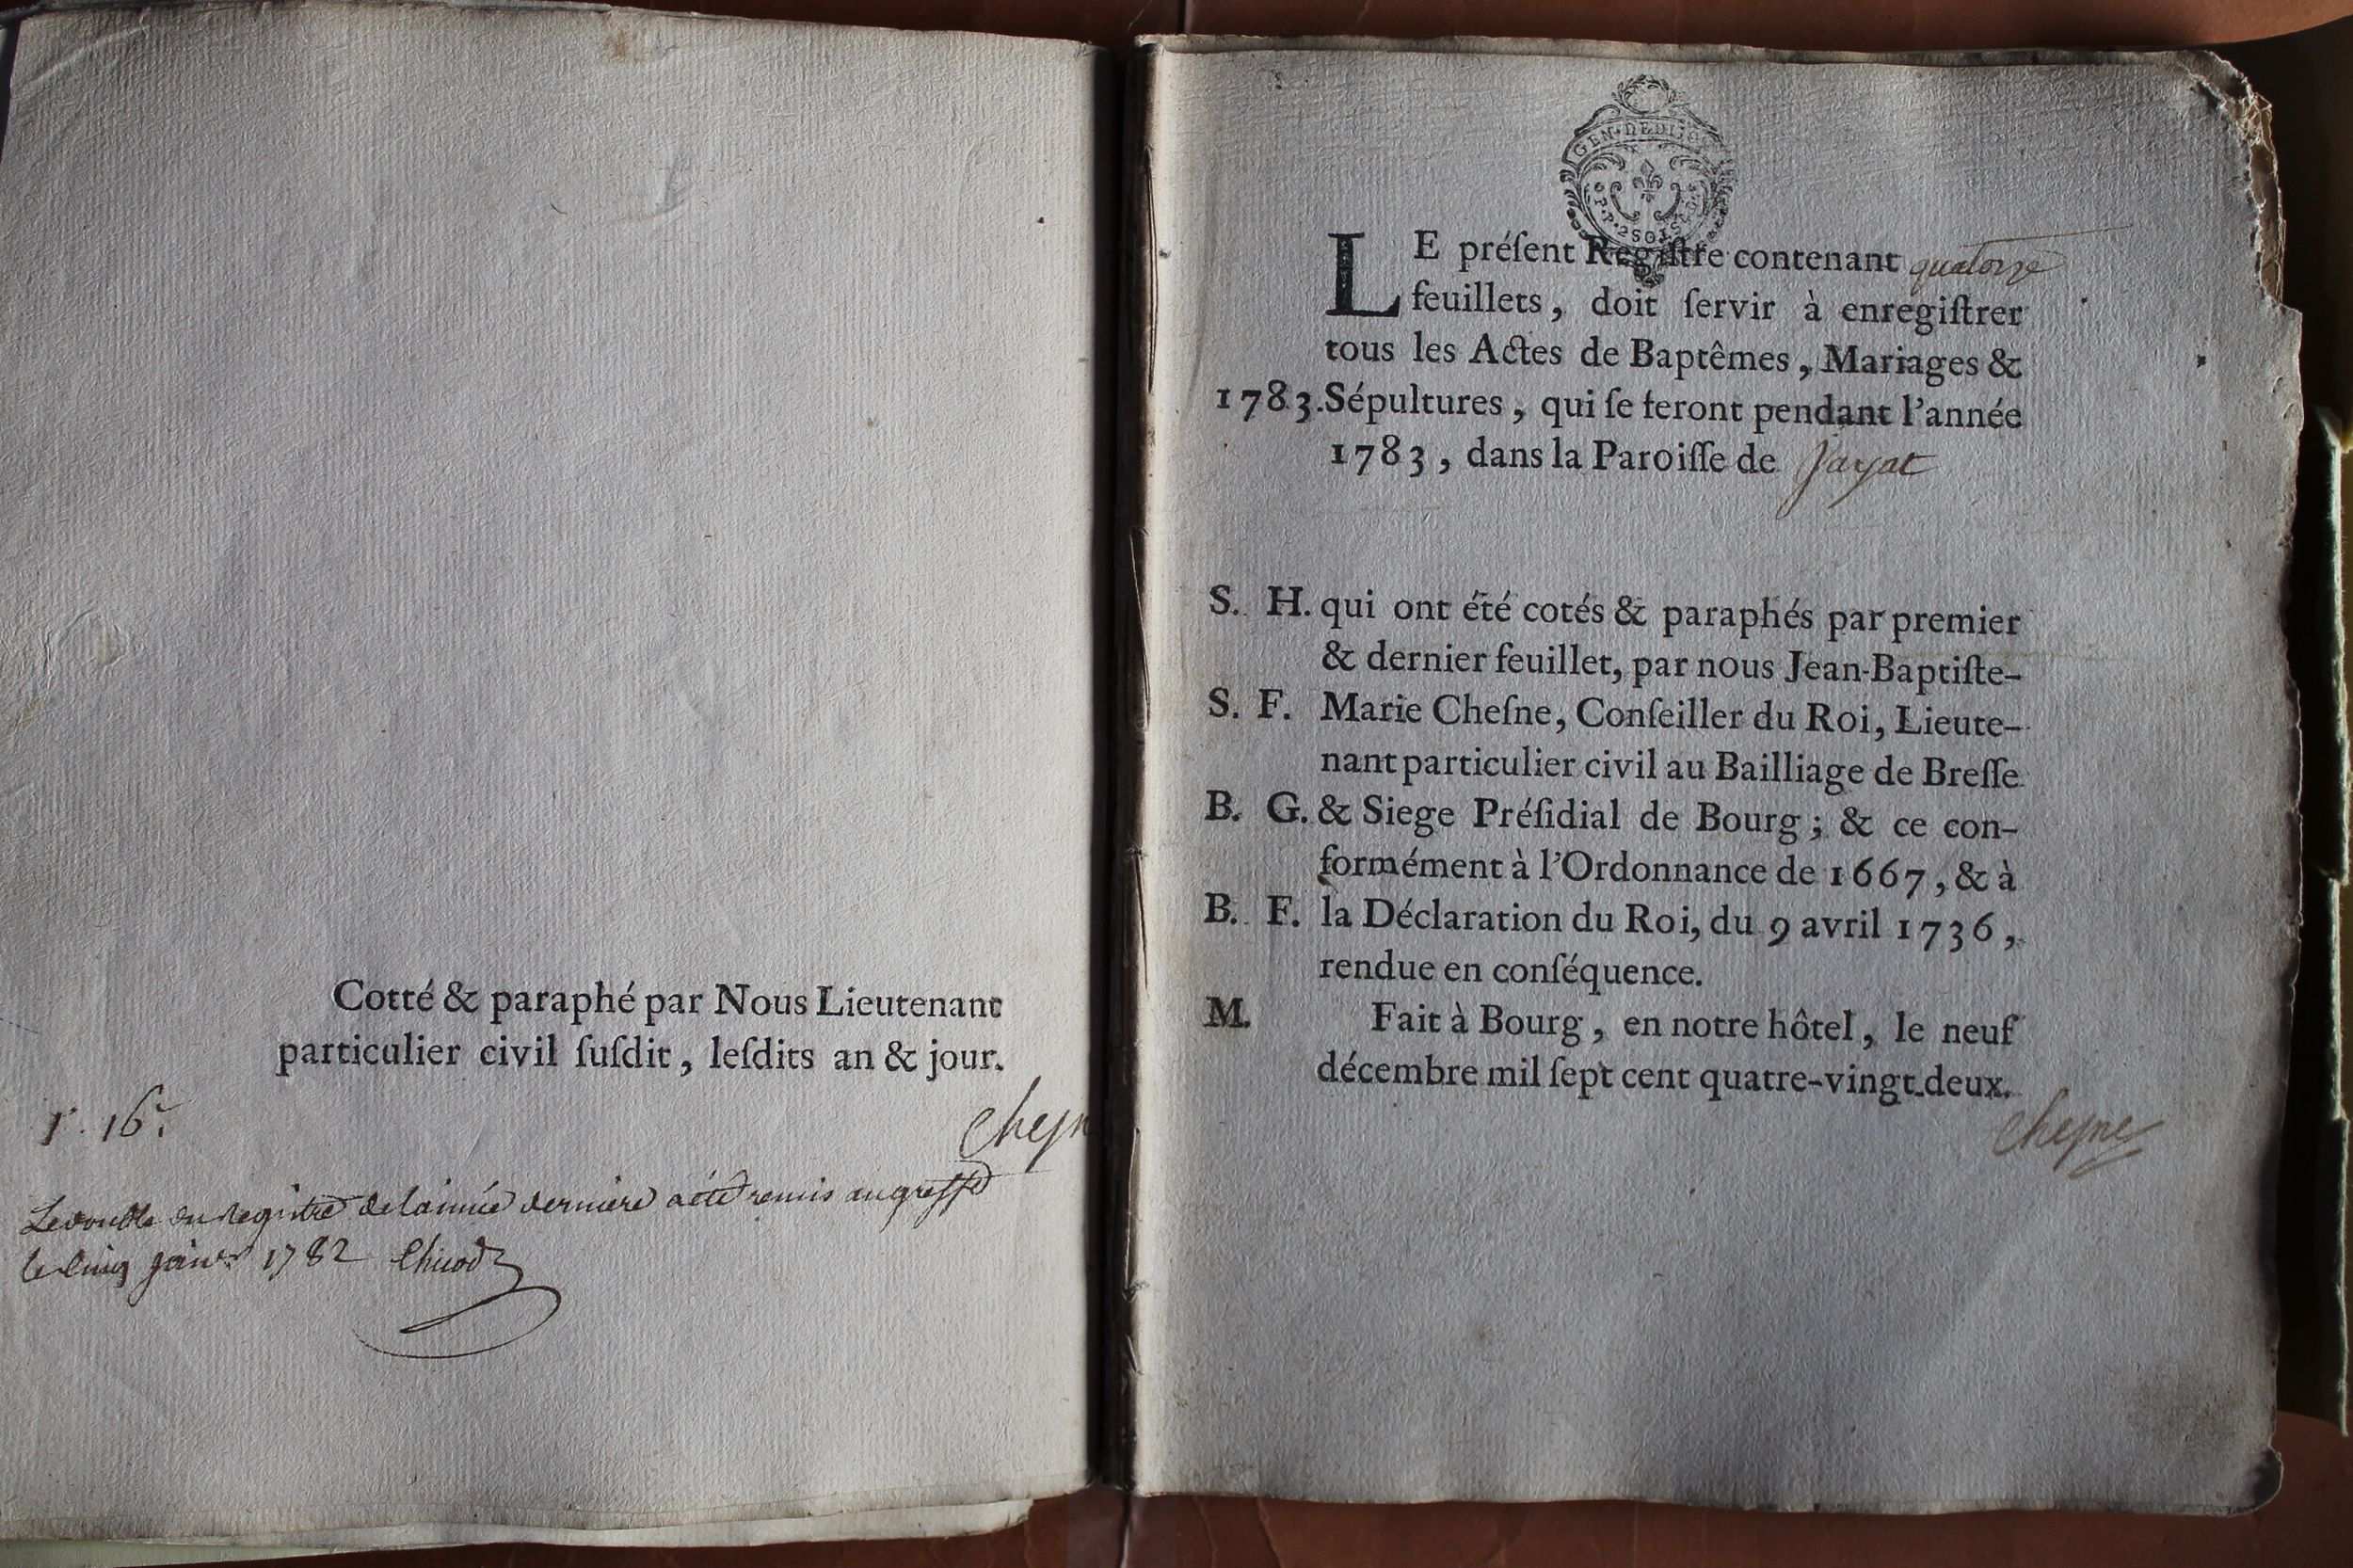 Cotté & paraphé par Nous Lieutenant
particulier civil ſuſdit, leſdits an & jour.
16.
Cheſn
Le double du Registre de lannée derniere a été remis au greffe
le cinq janvr 1782 Chicod
GEN. DE DIJON
LE préſent Regiſtre contenant quatorze
feuillets, doit ſervir à enregiſtrer
tous les Actes de Baptêmes, Mariages &
1783. Sépultures, qui ſe feront pendant l'année
1783, dans la Paroiſſe de Jayat
S. H. qui ont été cotés & paraphés par premier
& dernier feuillet, par nous Jean-Baptiſte-
S. F. Marie Cheſne, Conſeiller du Roi, Lieute-
nant particulier civil au Bailliage de Breſſe
B. G. & Siege Préſidial de Bourg; & ce con-
formément à l'Ordonnance de 1667, & à
B. F. la Déclaration du Roi, du 9 avril 1736,
rendue en conſéquence.
M. Fait à Bourg, en notre hôtel, le neuf
décembre mil ſept cent quatre-vingt-deux.
Cheſne